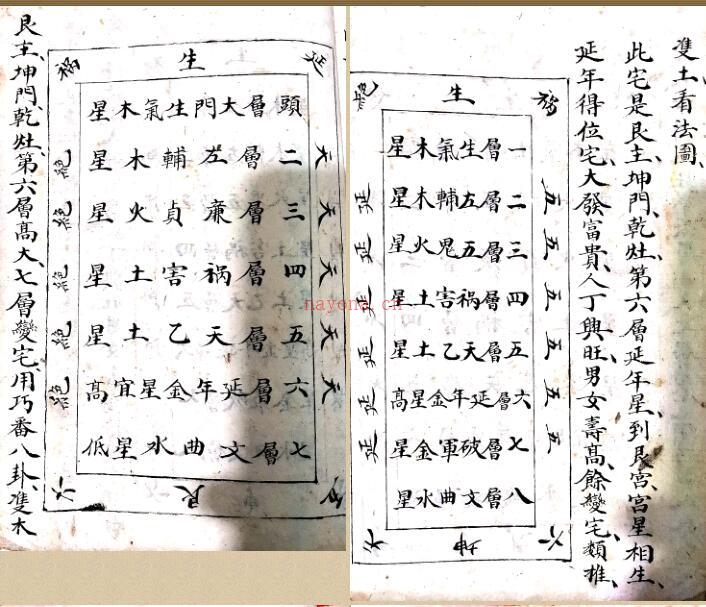 雙土看法圖
此宅是艮主坤門乾灶第六層延年星到艮宮宮星相生
延年得位宅大發富貴人丁興旺男女壽高餘變宅類推
絕 生 禍
一層生氣木星
二層左輔木星
三層五鬼火星
四層禍害土星
五層天乙土星
六層延年金星高
七層破軍金星
八層文曲水星
五五五五五五
延延延延延延
六 坤 天
延 生 禍
頭層大門生氣木星
二層左輔木星
三層廉貞火星
四層禍害土星
五層天乙土星
六層延年金星宜高
七層文曲水星低
天天天天天
絕絕絕絕絕
五 艮 六
艮主坤門乾灶第六層高大七層變宅用巧番八卦雙木
nayona.cn